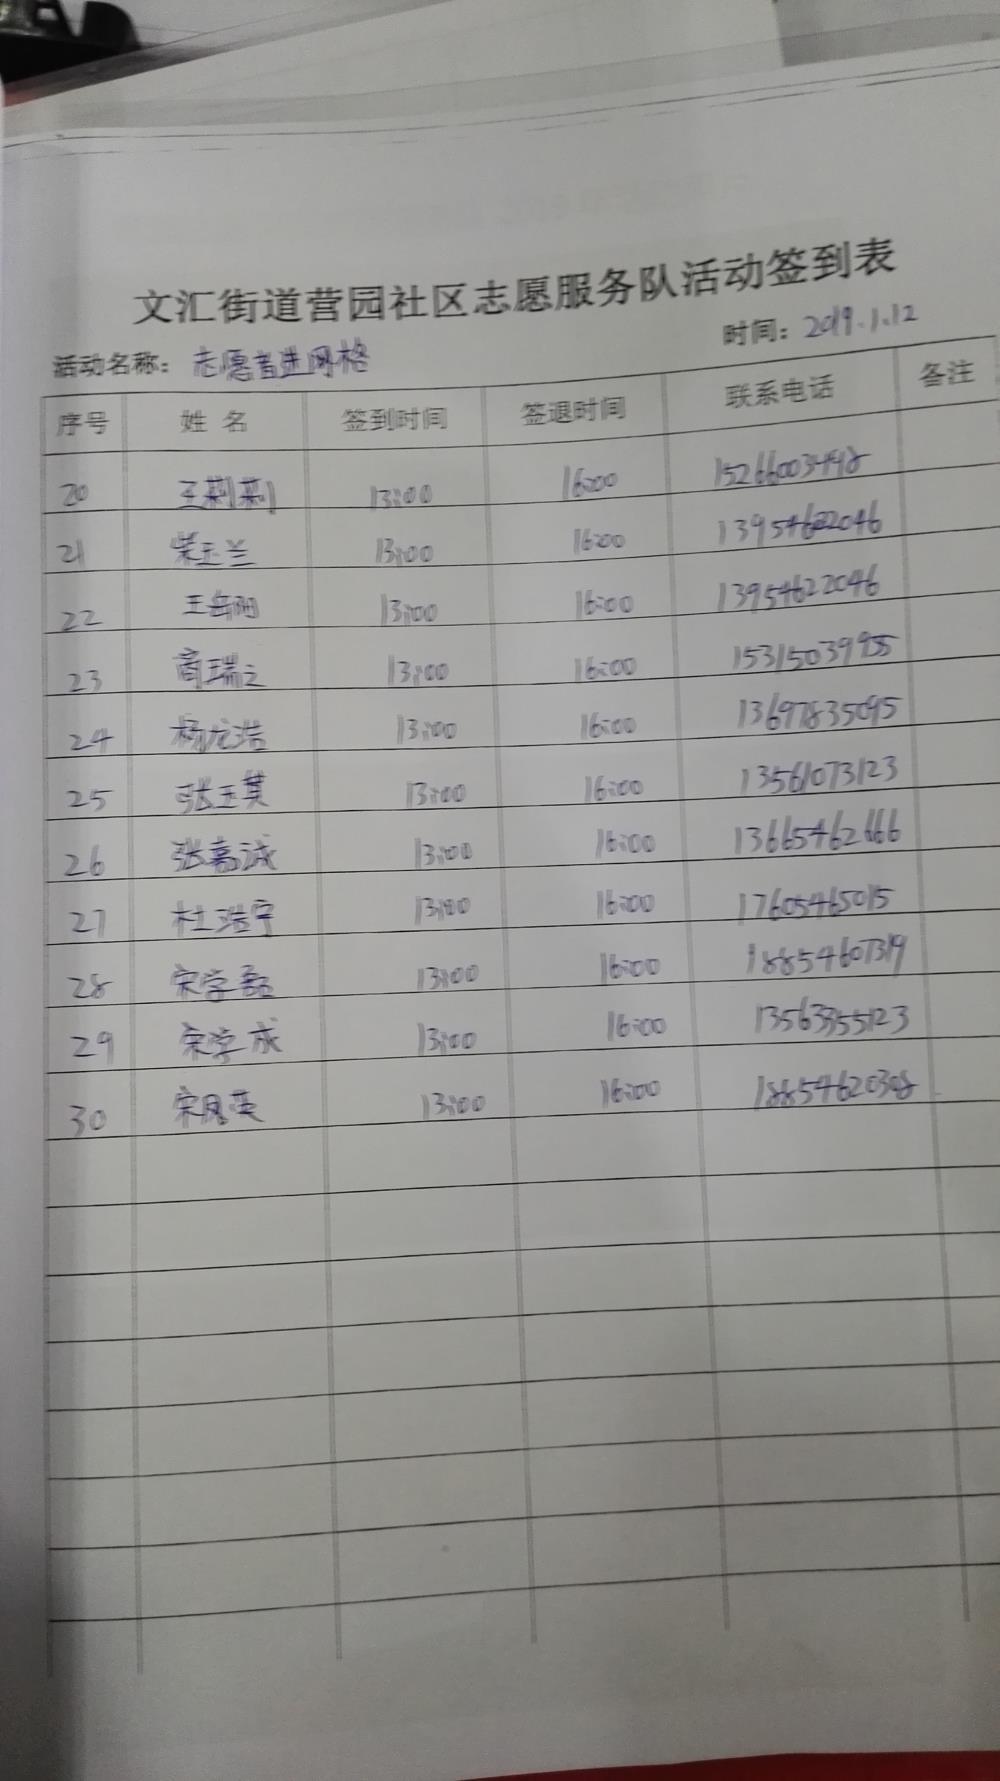 文汇街道营园社区志愿服务队活动签到表
活动名称：志愿者进网格 时间：2019.1.12
序号 姓名 签到时间 签退时间 联系电话 备注
20 王莉莉 13:00 16:00 15266003498
21 柴玉兰 13:00 16:00 13954622046
22 王岳阳 13:00 16:00 13954622046
23 商瑞之 13:00 16:00 153150399
24 杨龙浩 13:00 16:00 13697835095
25 张玉其 13:00 16:00 13561073123
26 张嘉诚 13:00 16:00 13665462666
27 杜浩宇 13:00 16:00 17605465015
28 宋学磊 13:00 16:00 18854607319
29 宋学成 13:00 16:00 13563355123
30 宋凤英 13:00 16:00 18854620308